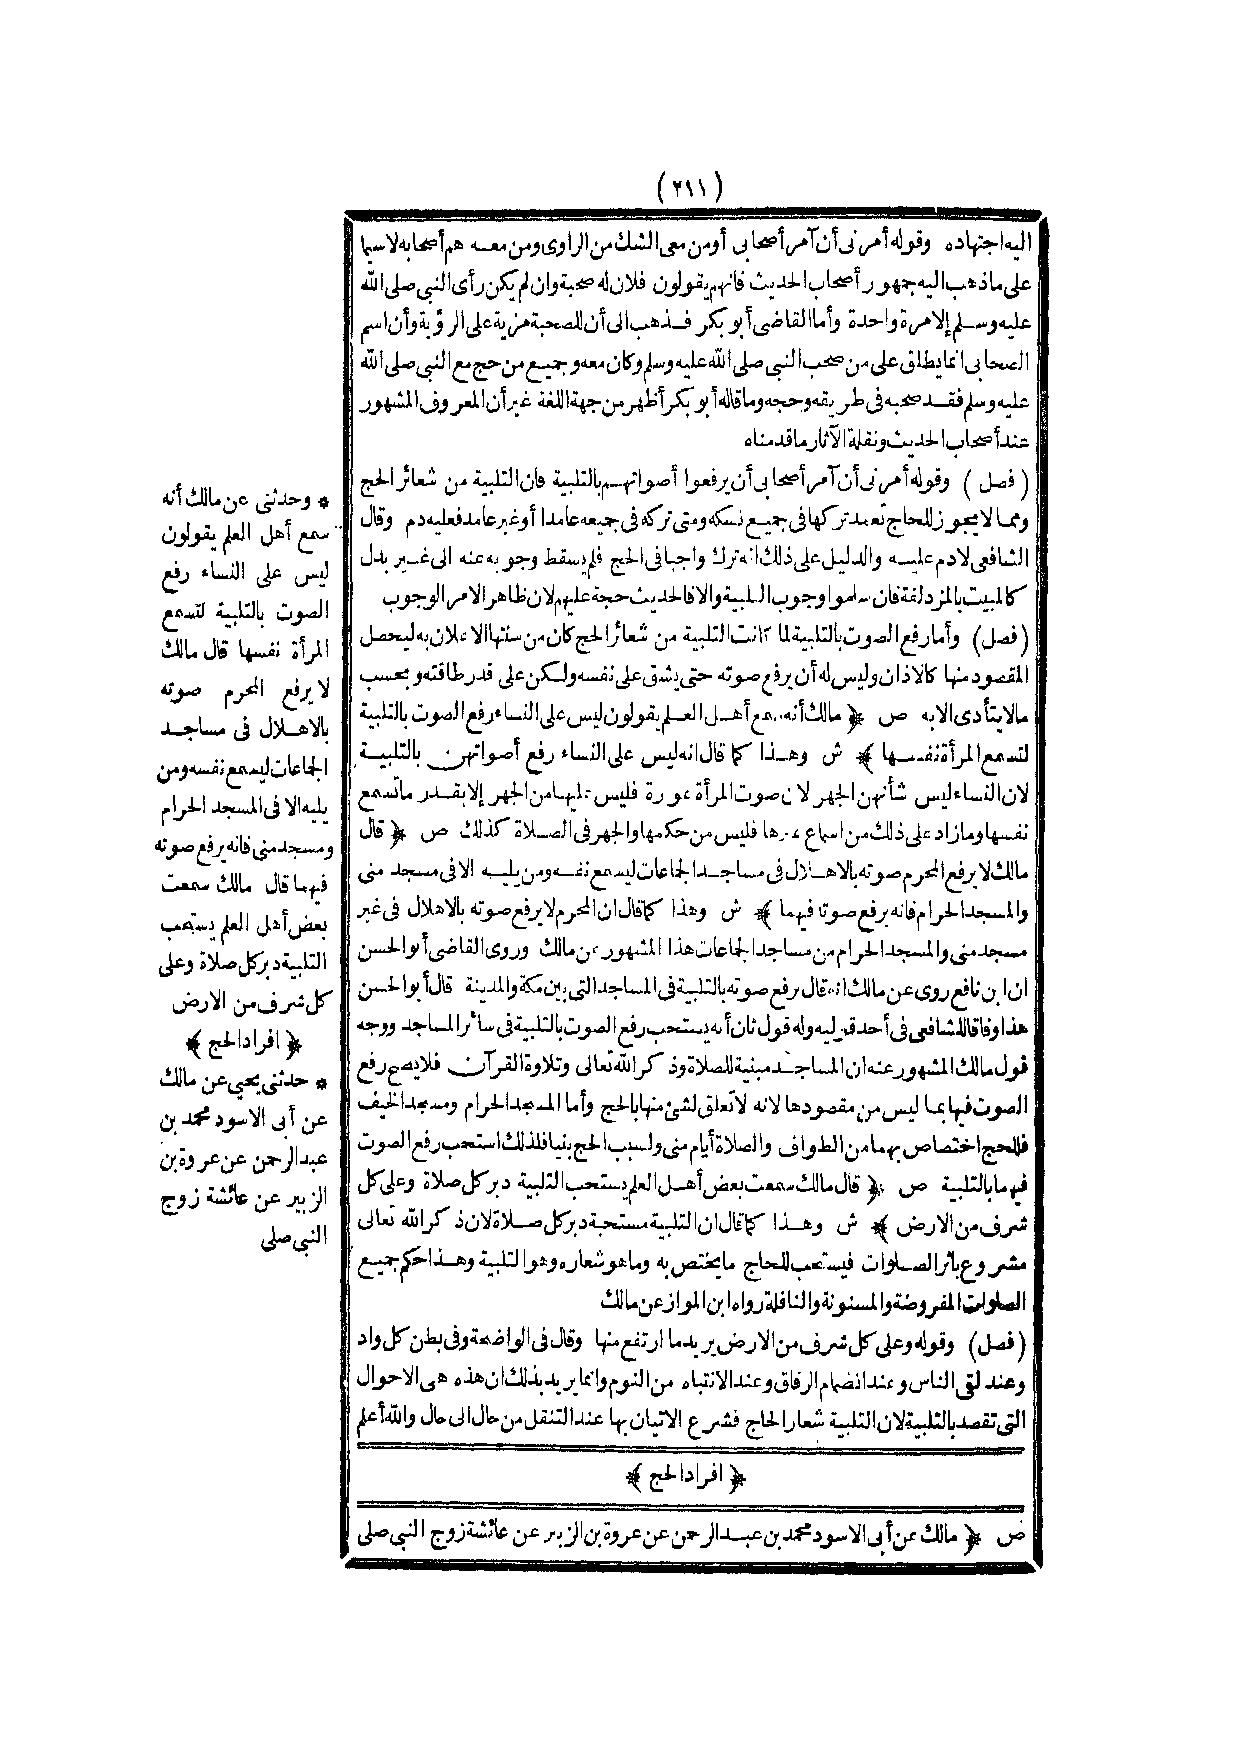 (٢١١)
اليه اجتهاده وقوله أمرنى أن آمر أصحابى أو من معى الشك من الراوى ومن معه هم أصحابه لاسيما
على ما ذهب اليه جمهور أصحاب الحديث فانهم يقولون فلان له صحبة وان لم يكن رأى النبى صلى الله
عليه وسلم إلا مرة واحدة وأما القاضى أبو بكر فذهب الى أن للصحبة مزية على الرؤية وأن اسم
الصحابى انما يطلق على من صحب النبى صلى الله عليه وسلم وكان معه وجميع من حج مع النبى صلى الله
عليه وسلم فقد صحبه فى طريقه وحجه وما قاله أبو بكر أظهر من جهة اللغة غير أن المعروف المشهور
عند أصحاب الحديث ونقلة الآثار ما قدمناه
(فصل) وقوله أمرنى أن آمر أصحابى أن يرفعوا أصواتهم بالتلبية فان التلبية من شعائر الحج
ومما لا يجوز للحاج تعمد تركها فى جميع نسكه ومتى تركه فى جميعه عامدا أو غير عامد فعليه دم وقال
الشافعى لا دم عليه والدليل على ذلك انه ترك واجبا فى الحج فلم يسقط وجوبه عنه الى غير بدل
كالمبيت بالمزدلفة فان سلموا وجوب التلبية والا فالحديث حجة عليهم لان ظاهر الامر الوجوب
(فصل) وأما رفع الصوت بالتلبية لما كانت التلبية من شعائر الحج كان من سنتها الاعلان به ليحصل
المقصود منها كالاذان وليس له أن يرفع صوته حتى يشق على نفسه ولكن على قدر طاقته وبحسب
مالا يتأدى الابه ص ﴿ مالك أنه سمع أهل العلم يقولون ليس على النساء رفع الصوت بالتلبية
لتسمع المرأة نفسها ﴾ ش وهذا كما قال انه ليس على النساء رفع أصواتهن بالتلبية
لان النساء ليس شأنهن الجهر لان صوت المرأة عورة فليس عليها من الجهر إلا بقدر ما تسمع
نفسها وما زاد على ذلك من اسماع غيرها فليس من حكمها والجهر فى الصلاة كذلك ص ﴿ قال
مالك لا يرفع المحرم صوته بالاهلال فى مساجد الجماعات ليسمع نفسه ومن يليه الا فى مسجد منى
والمسجد الحرام فانه يرفع صوته فيهما ﴾ ش وهذا كما قال ان المحرم لا يرفع صوته بالاهلال فى غير
مسجد منى والمسجد الحرام من مساجد الجماعات هذا المشهور عن مالك وروى القاضى أبو الحسن
ان ابن نافع روى عن مالك انه قال يرفع صوته بالتلبية فى المساجد التى بين مكة والمدينة قال أبو الحسن
هذا وفاقا للشافعى فى أحد قوليه وله قول ثان أنه يستحب رفع الصوت بالتلبية فى سائر المساجد ووجه
قول مالك المشهور عنه ان المساجد مبنية للصلاة وذكر الله تعالى وتلاوة القرآن فلا يصح رفع
الصوت فيها بما ليس من مقصودها لانه لا تعلق لشئ منها بالحج وأما المسجد الحرام ومسجد الخيف
فللحج اختصاص بهما من الطواف والصلاة أيام منى ولسبب الحج بنيا فلذلك استحب رفع الصوت
فيهما بالتلبية ص ﴿ قال مالك سمعت بعض أهل العلم يستحب التلبية دبر كل صلاة وعلى كل
شرف من الارض ﴾ ش وهذا كما قال ان التلبية مستحبة دبر كل صلاة لان ذكر الله تعالى
مشروع باثر الصلوات فيستحب للحاج ما يختص به وما هو شعاره وهو التلبية وهذا حكم جميع
الصلوات المفروضة والمسنونة والنافلة رواه ابن المواز عن مالك
(فصل) وقوله وعلى كل شرف من الارض يريد ما ارتفع منها وقال فى الواضحة وفى بطن كل واد
وعند لقى الناس وعند انضمام الرفاق وعند الانتباه من النوم وانما يريد بذلك ان هذه هى الاحوال
التى تقصد بالتلبية لان التلبية شعار الحاج فشرع الاتيان بها عند التنقل من حال الى حال والله أعلم
﴿ افراد الحج ﴾
ص ﴿ مالك عن أبى الاسود محمد بن عبد الرحمن عن عروة بن الزبير عن عائشة زوج النبى صلى
* وحدثنى عن مالك أنه
سمع أهل العلم يقولون
ليس على النساء رفع
الصوت بالتلبية لتسمع
المرأة نفسها قال مالك
لا يرفع المحرم صوته
بالاهلال فى مساجد
الجماعات ليسمع نفسه ومن
يليه الا فى المسجد الحرام
ومسجد منى فانه يرفع صوته
فيهما قال مالك سمعت
بعض أهل العلم يستحب
التلبية دبر كل صلاة وعلى
كل شرف من الارض
﴿ افراد الحج ﴾
* حدثنى يحيى عن مالك
عن أبى الاسود محمد بن
عبد الرحمن عن عروة بن
الزبير عن عائشة زوج
النبى صلى